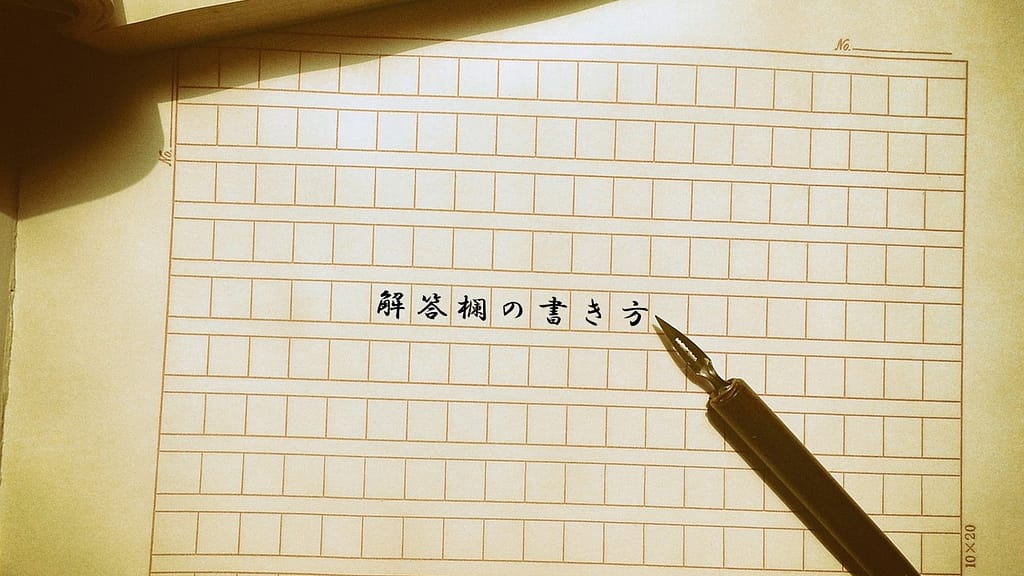 No.
No.
解答欄の書き方
10×20